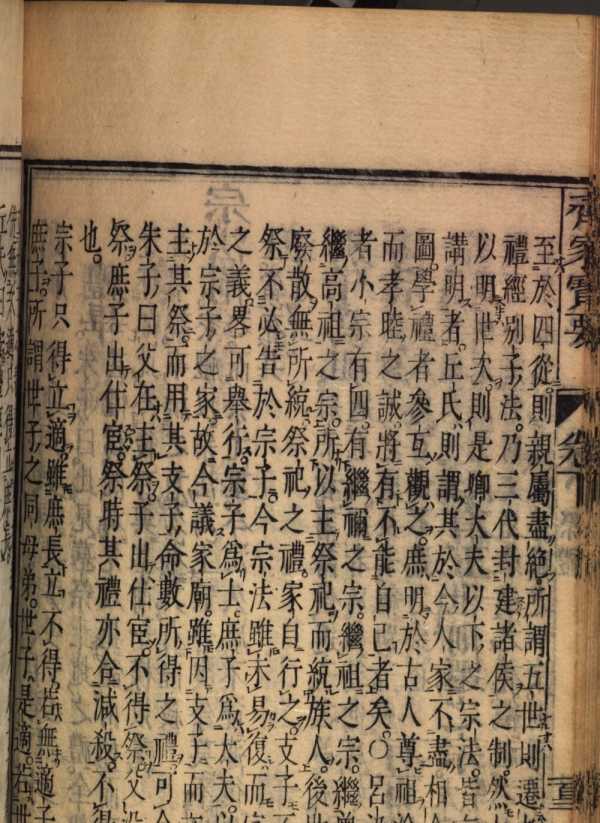 齊家寶要
卷下
至於四從則親屬盡絕所謂五世則遷
禮經別子法乃三代封建諸侯之制然
以明世次則是卿大夫以下之宗法皆
講明者丘氏則謂其於今人家不盡相合
圖學禮者參互觀之庶明於古人尊祖
而孝睦之誠將有不能自已者矣○呂
者小宗有四有繼禰之宗繼祖之宗繼曾
繼高祖之宗所以主祭祀而統族人後世
廢散無所統祭祀之禮家自行之支子不
祭不必告於宗子今宗法雖未易復而
之義畧可舉行宗子爲士庶子爲大夫以
於宗子之家故今議家廟雖因支子而
主其祭而用其支子命數所得之禮可
朱子曰父在主祭子出仕宦不得祭父沒
祭庶子出仕宦祭時其禮亦合減殺不得
也
宗子只得立適雖庶長立不得若無適子
庶子所謂世子之同母弟世子是適若世